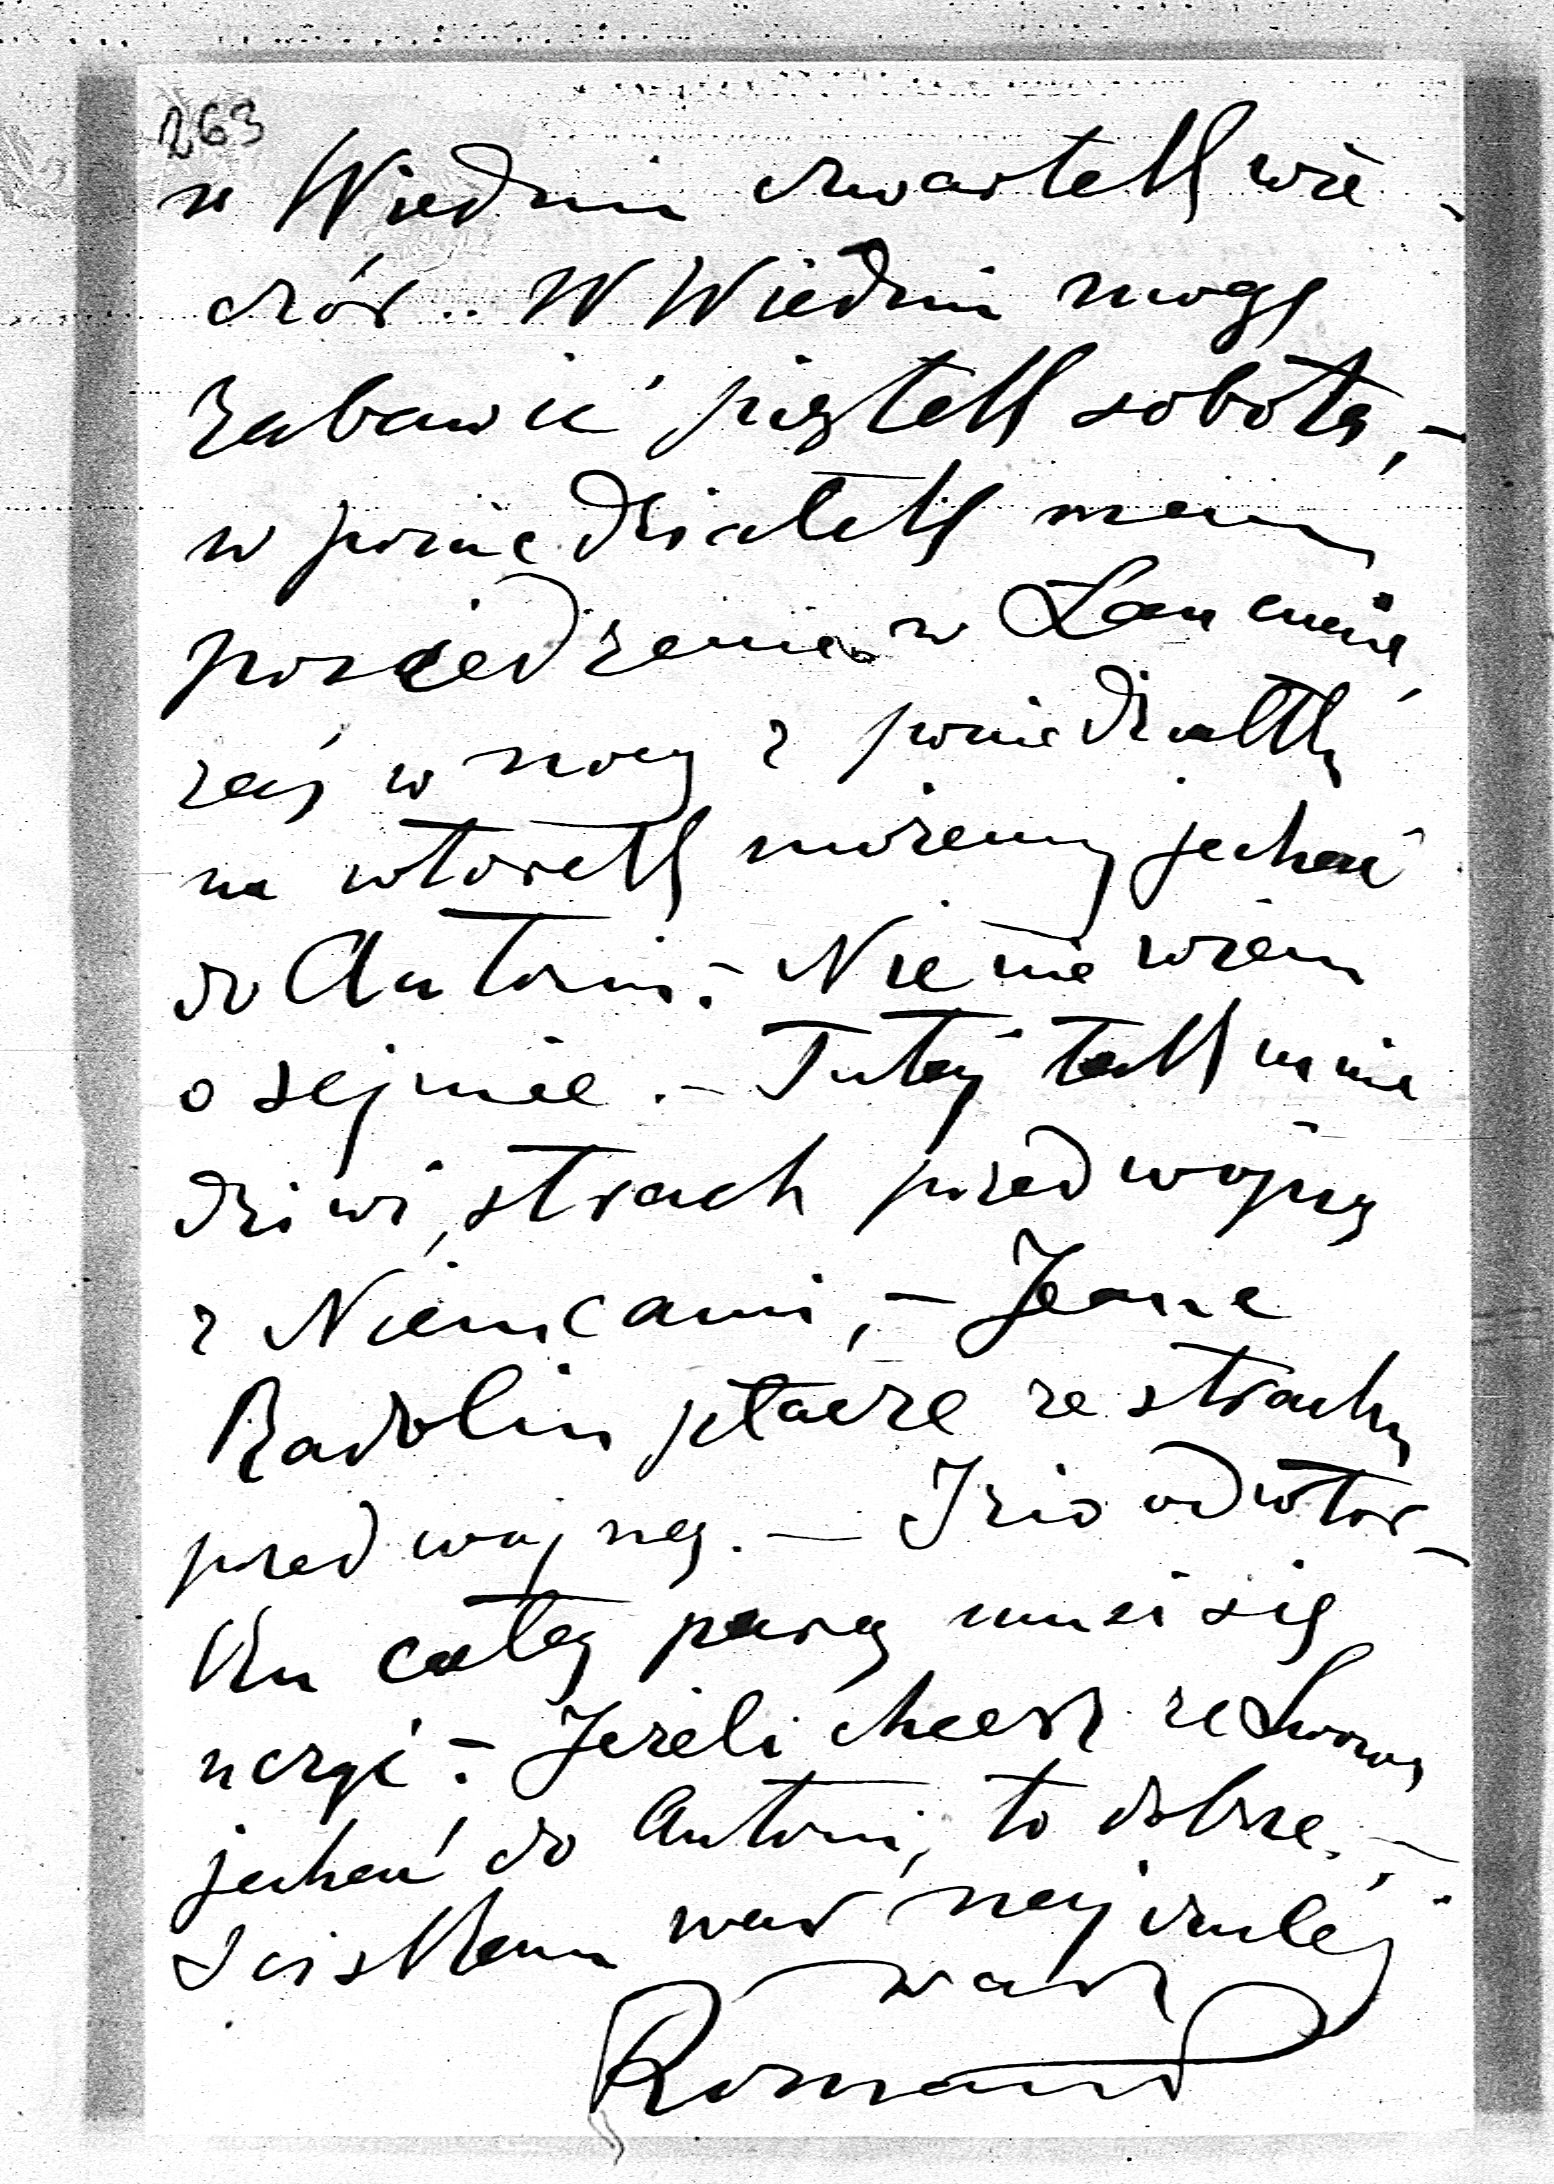 263
w Wiedniu czwartek wie-
czór. W Wiedniu mogę
zabawić piątek sobotę, -
w poniedziałek mam
posiedzenie w Łańcucie,
zaś w nocy z poniedziałku
na wtorek możemy jechać
do Antonin. - Nic nie wiem
o sejmie. - Tutaj tak mnie
dziwi, strach przed wojną
z Niemcami, -
Radolin płacze ze strachu
przed wojną. - Izio od wtor-
ku całą parą musi się
uczyć. - Jeżeli chcesz ze Lwowa
jechać do Antonin, to dobrze. -
Sciskam was najczulej
wasz
Roman